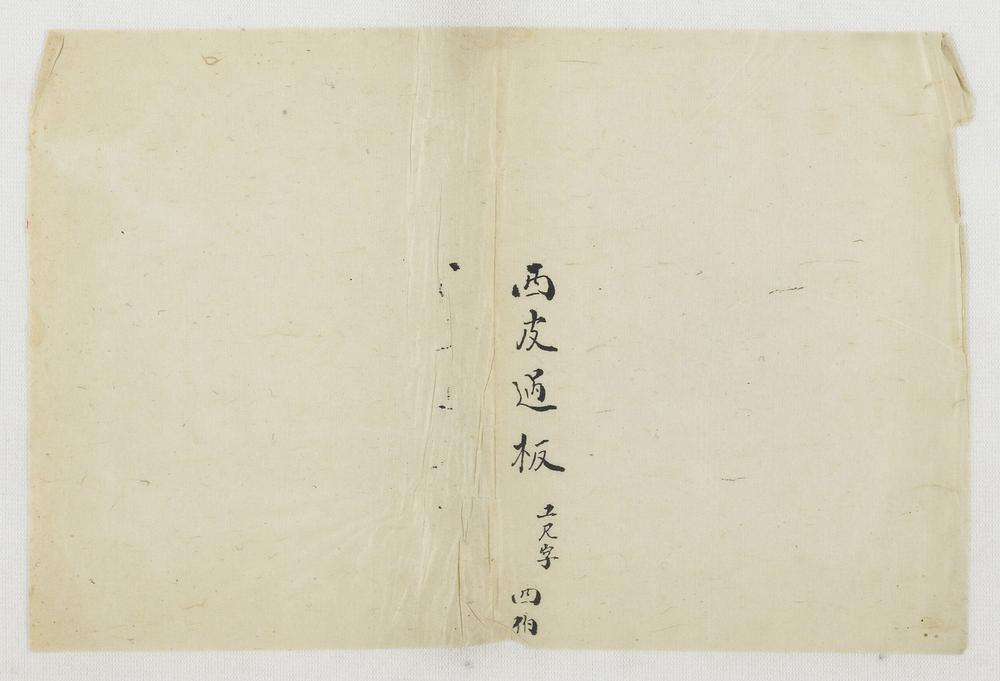 西皮過板
工尺字
四伯